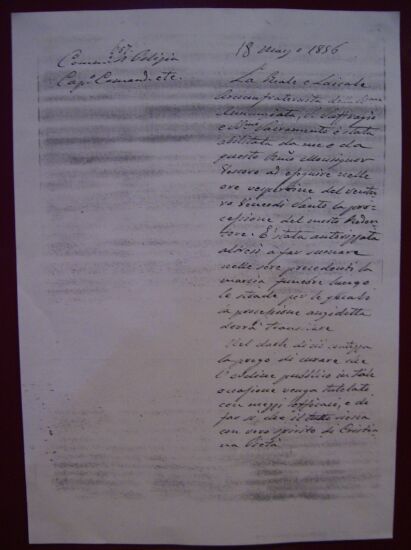 18 Marzo 1856
Commiss. Polizia
Cap.º Comand. etc.
La Reale e Laicale
Arciconfraternita della
Annunziata, del Suffragio
e SSmo Sacramento è stata
abilitata da me e da
questo Rmo Monsignor
Vescovo ad eseguire nelle
ore vespertine del ventu
ro Venerdì Santo la pro-
cessione del morto Reden
tore. È stata autorizzata
altresì a far suonare
nelle sere precedenti la
marcia funebre lungo
le strade per le quali
la processione anzidetta
dovrà transitare
Nel darle di ciò contezza
la prego di curare che
l'ordine pubblico in tale
occasione venga tutelato
con mezzi efficaci, e di
far sì, che il tutto riesca
con vero spirito di Cristia
na Pietà